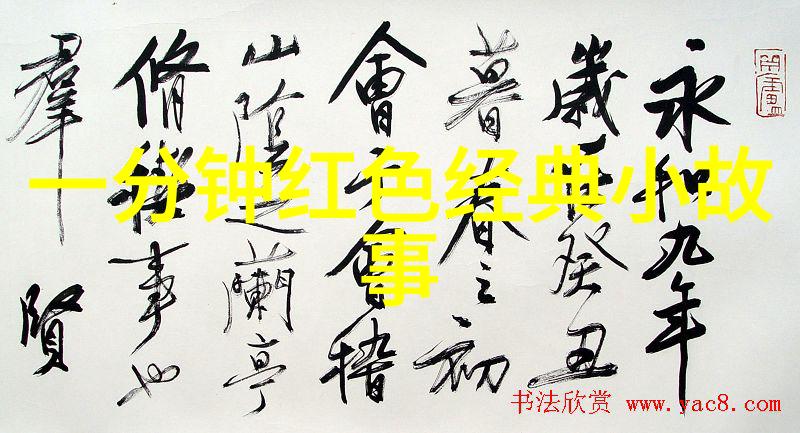 永和九年
歲在癸丑
暮春之初
會于會稽
山陰之蘭亭
脩禊事也
羣賢
一分钟红色经典小故
事
书法欣赏 www.yac8.com